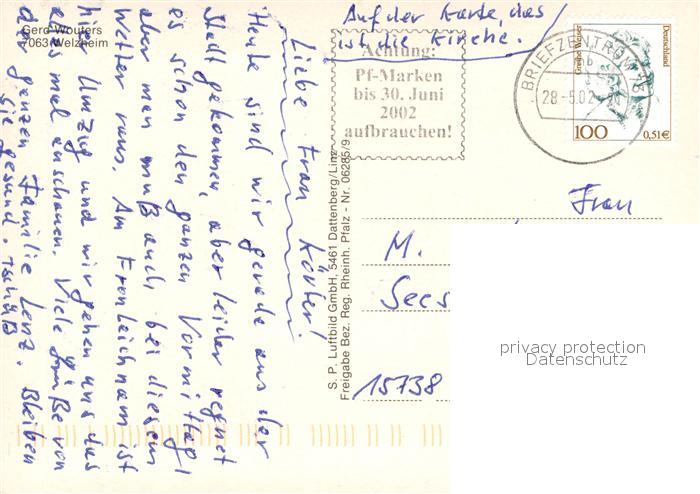 Gerd Wouters
7063 Welzheim
Auf der Karte, das
ist die Kirche.
Achtung:
Pf-Marken
bis 30. Juni
2002
aufbrauchen!
BRIEFZENTRUM 15
28.-5.02
Grethe Weiser
Deutschland
100
0,51€
Liebe Frau
Heute sind wir gerade aus der
Stadt gekommen, aber leider regnet
es schon den ganzen Vormittag,
aber man muß auch bei diesem
Wetter raus. Am Fronleichnam ist
hier Umzug und wir gehen uns das
alles mal anschauen. Viele Grüße von
der ganzen Familie Lenz. Bleiben
Sie gesund. Tschüß
S. P. Luftbild GmbH, 5461 Dattenberg/Linz
Freigabe Bez. Reg. Rheinh. Pfalz - Nr. 06285/9
Frau
M.
Sees
15738
privacy protection
Datenschutz